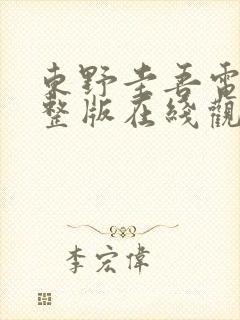 東野圭吾電
整版在綫觀
李宏偉